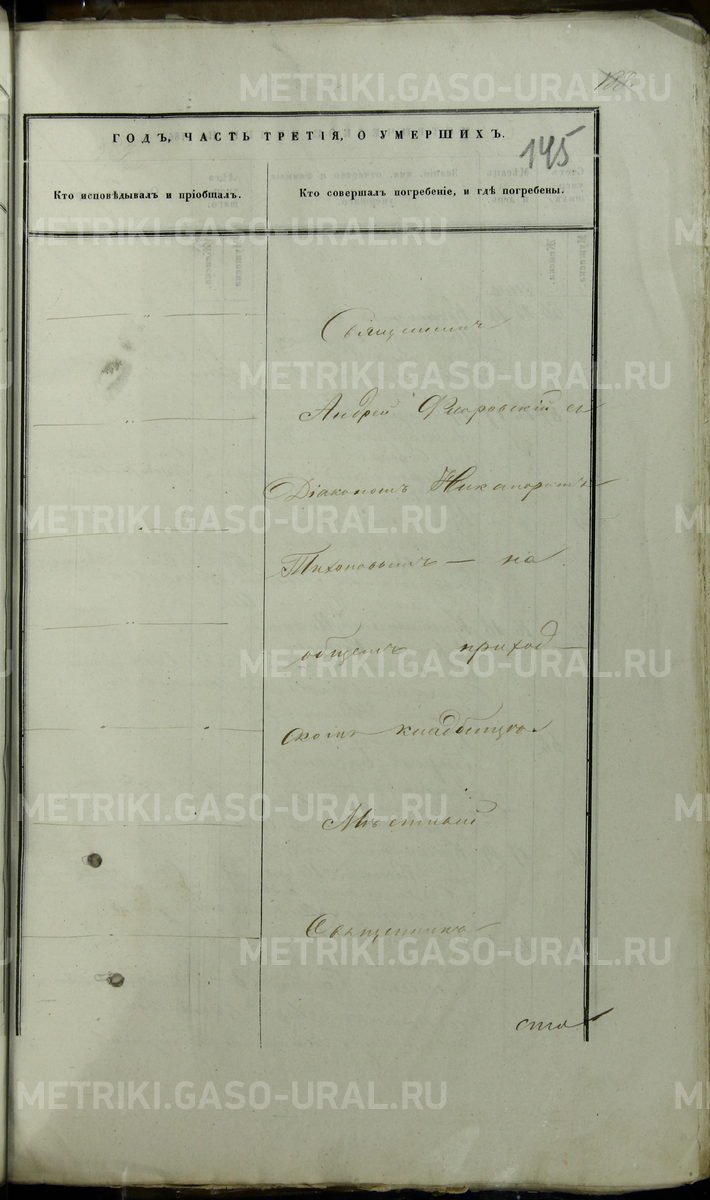 188.
ГОДЪ, ЧАСТЬ ТРЕТІЯ, О УМЕРШИХЪ.
145
Кто исповѣдывалъ и пріобщалъ.
Кто совершалъ погребеніе, и гдѣ погребены.
Священникъ
Андрей Флоровскій съ
Діакономъ Никаноромъ
Тихоновымъ — на
общемъ приход-
скомъ кладбищѣ.
Мѣстный
Священникъ
METRIKI.GASO-URAL.RU
METRIKI.GASO-URAL.RU
METRIKI.GASO-URAL.RU
METRIKI.GASO-URAL.RU
METRIKI.GASO-URAL.RU
METRIKI.GASO-URAL.RU
METRIKI.GASO-URAL.RU
METRIKI.GASO-URAL.RU